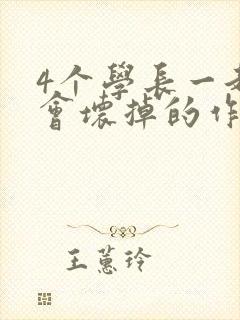 4个學長一
會壞掉的作
王蕙玲